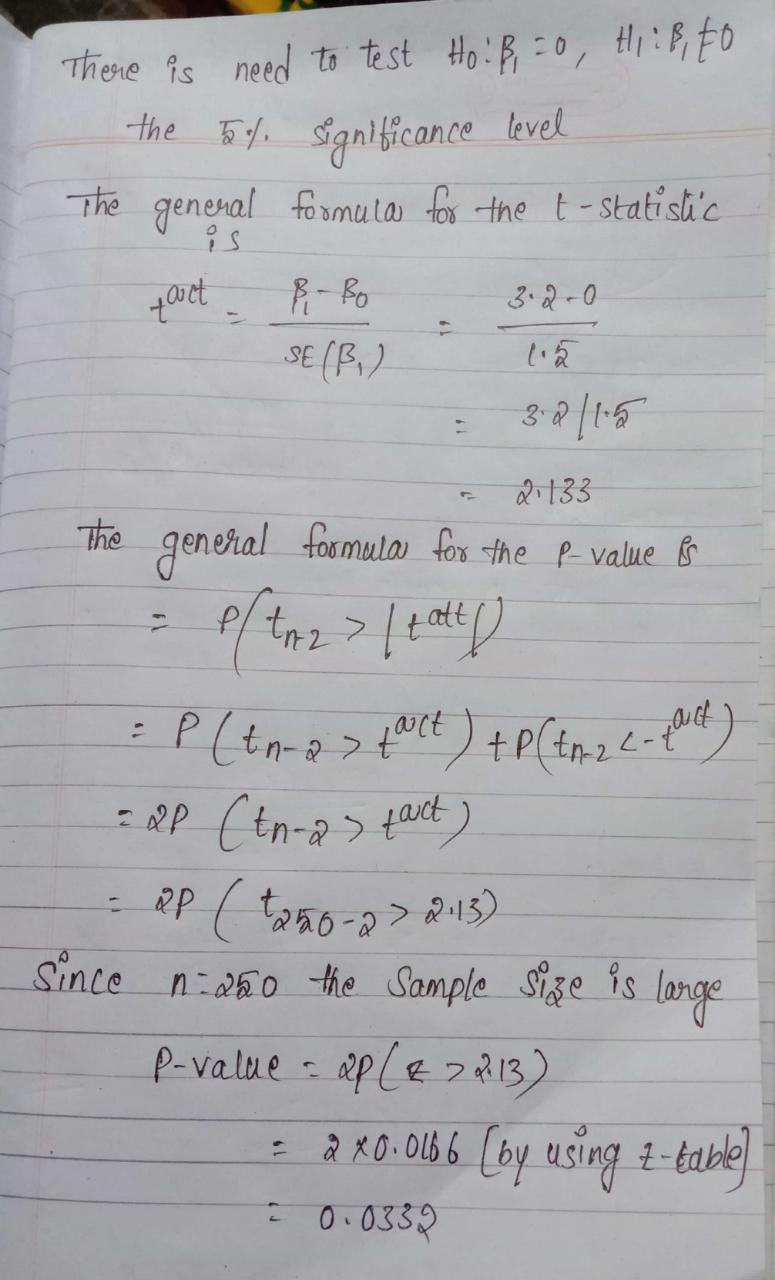 There is need to test H0:β1=0, H1:β1≠0
the 5%. significance level
The general formula for the t-statistic
is
t^act = β1-β0 / SE(β1) = 3.2-0 / 1.5
= 3.2/1.5
= 2.133
The general formula for the P-value is
= P(tn-2 > |t^att|)
= P(tn-2 > t^act) + P(tn-2 < -t^act)
= 2P (tn-2 > t^act)
= 2P (t250-2 > 2.13)
Since n=250 the Sample size is large
P-value = 2P(z > 2.13)
= 2 x 0.0166 [by using z-table]
= 0.0332